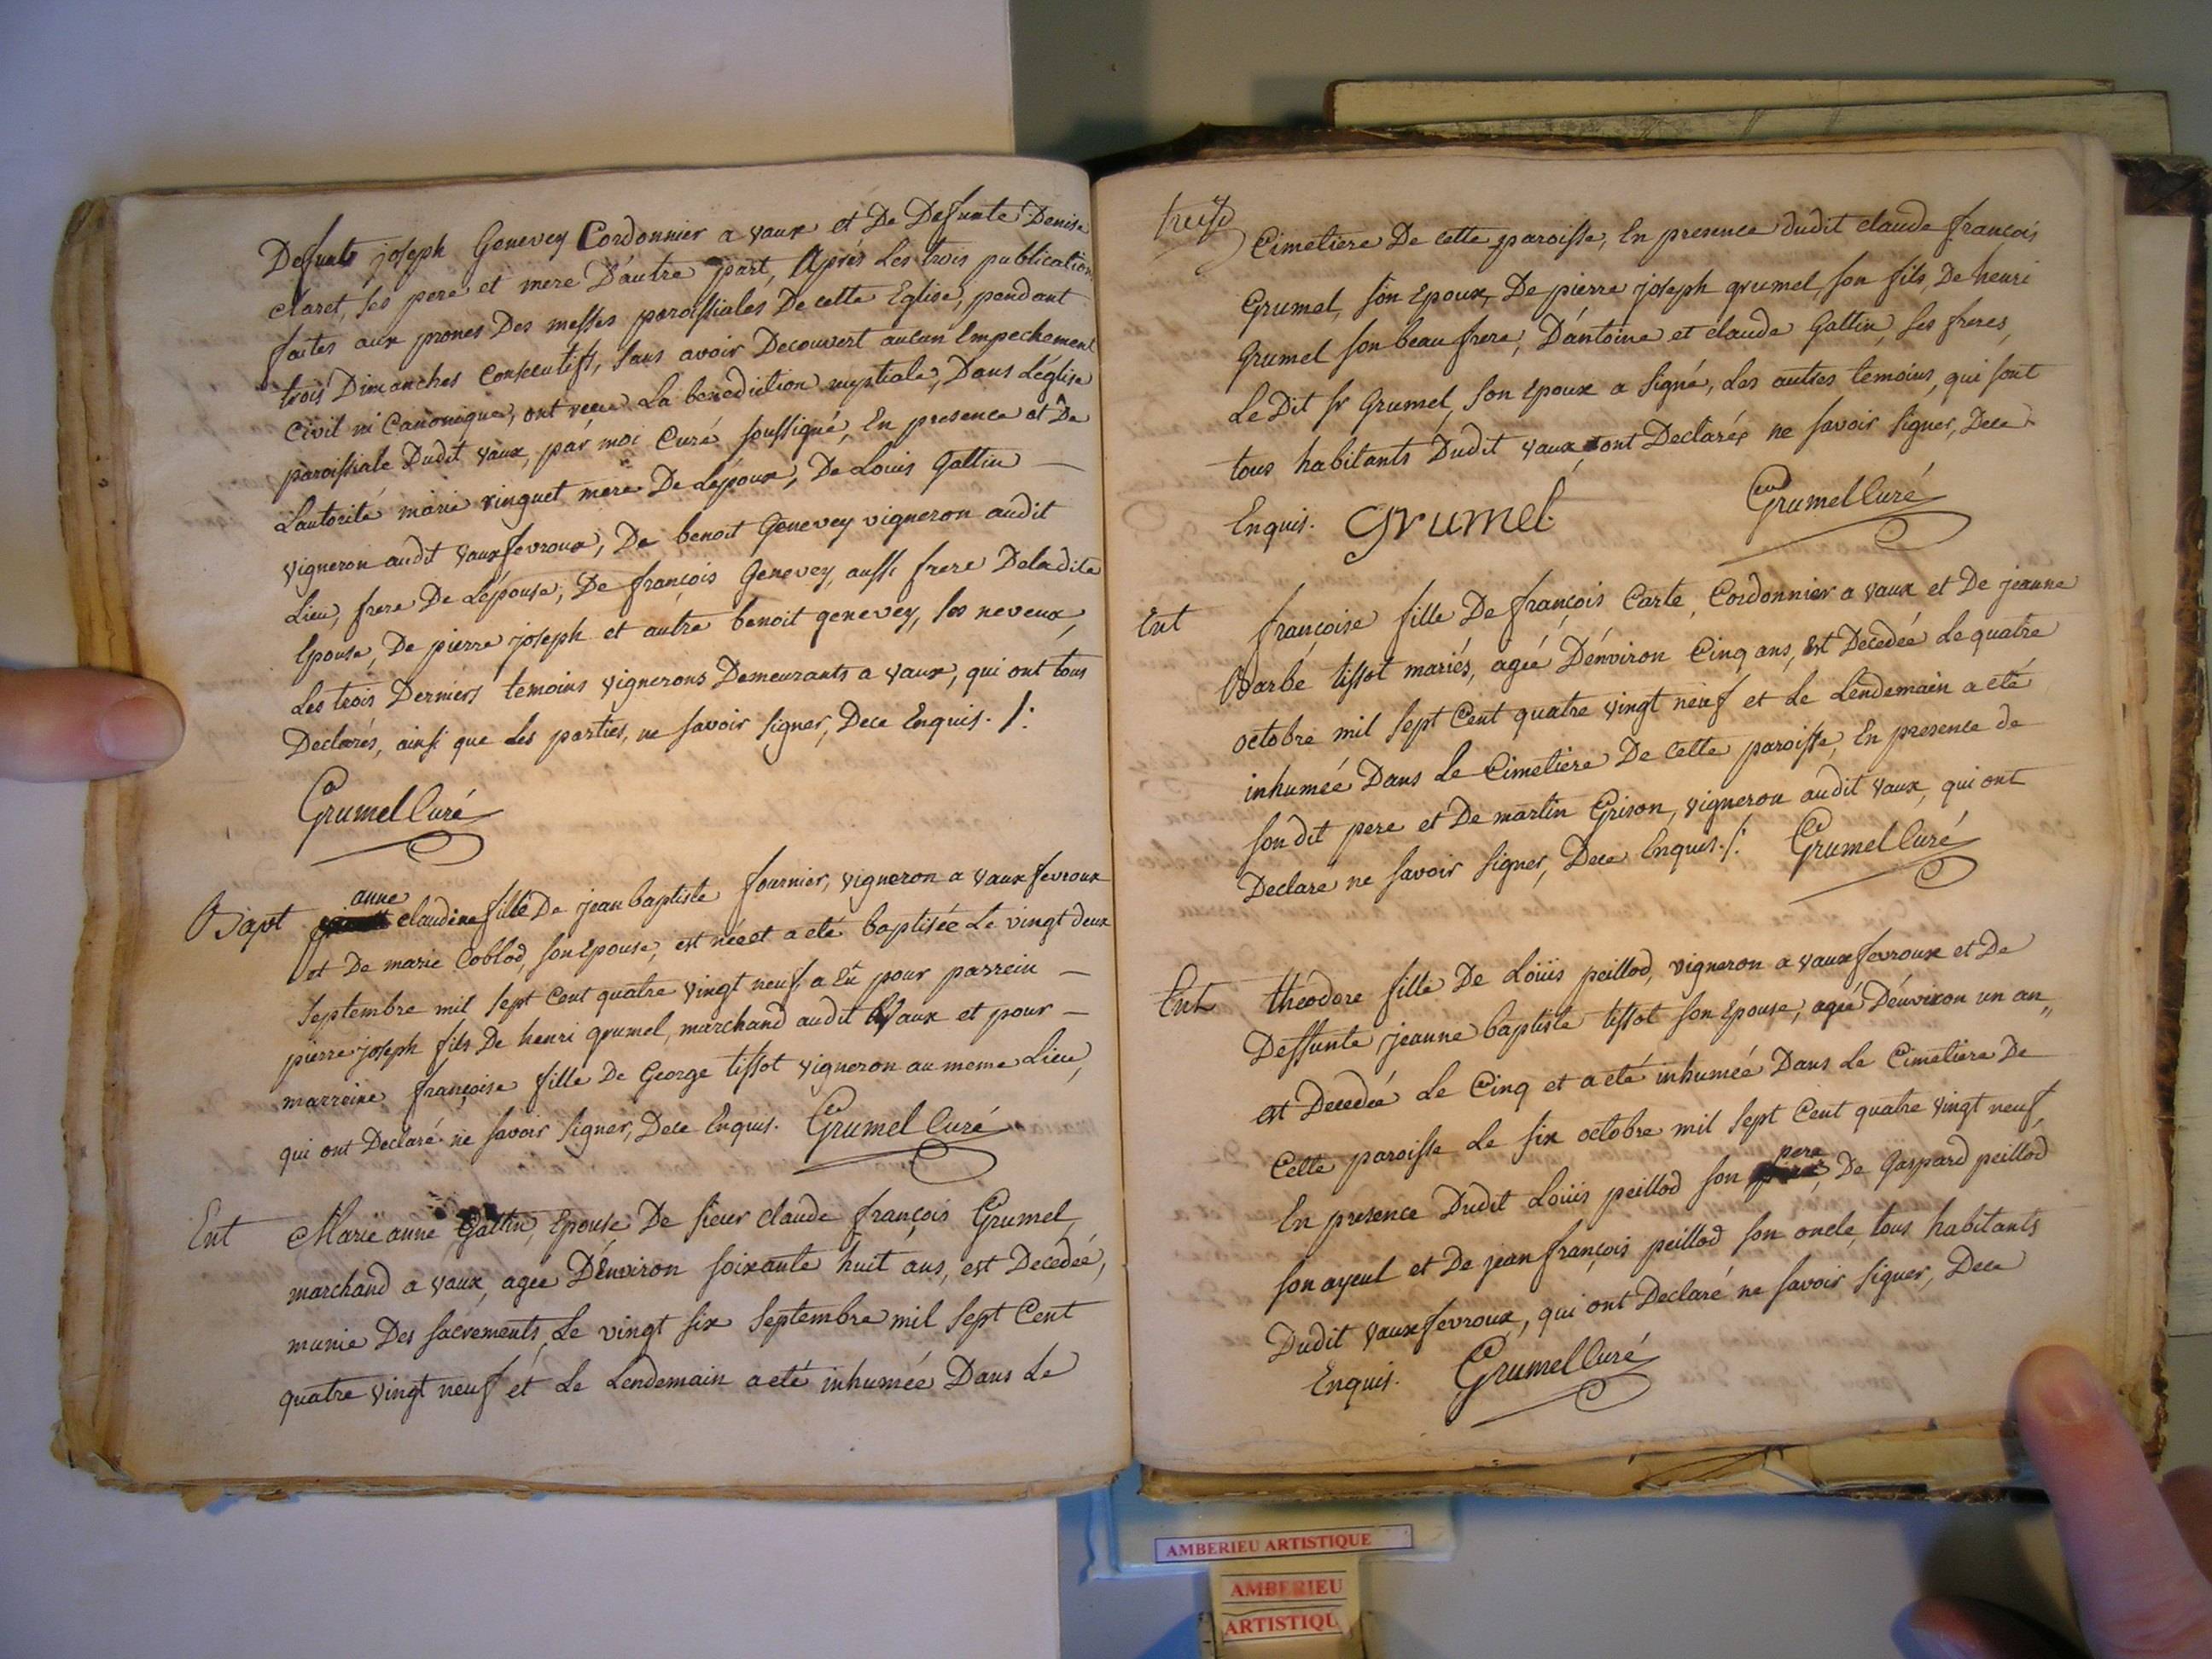 Defunts joseph Genevey Cordonnier a vaux et De Defunte Denise
claret, ses pere et mere D'autre part, Après Les trois publications
faites aux prones Des messes paroissiales De cette Eglise, pendant
trois Dimanches Consecutifs, sans avoir Decouvert aucun Empechement
Civil ni Canonique, ont reçue La benediction nuptiale, Dans L'église
paroissiale Dudit vaux, par moi Curé soussigné, En presence et De
L'autorité marie vinguet mere De L'epoux, De Louis Gattin
vigneron audit vauxfevroux, De benoit Genevey vigneron audit
Lieu, frere De L'épouse, De françois Genevey, aussi frere De ladite
Epouse, De pierre joseph et autre benoit genevey, ses neveux,
Les trois Derniers temoins vignerons Demeurants a vaux, qui ont tous
Declarés, ainsi que Les parties, ne savoir signer, Dece Enquis. /:
Grumel Curé
Bapt anne claudine fille De jean baptiste fournier, vigneron a vaux fevroux
et De marie Coblod, son Epouse, est née et a eté baptisée Le vingt deux
Septembre mil sept Cent quatre vingt neuf. a Eû pour parrein
pierre joseph fils De henri grumel, marchand audit Vaux et pour
marreine françoise fille De George tissot vigneron au meme Lieu,
qui ont Declaré ne savoir signer, Dece Enquis. Grumel Curé
Ent Marie anne Gattin, Epouse De sieur claude françois Grumel,
marchand a vaux, agée D'Environ soixante huit ans, est Decedée,
munie Des sacrements, Le vingt six septembre mil sept Cent
quatre vingt neuf et Le Lendemain a eté inhumée Dans Le
Cimetiere De cette paroisse, En presence dudit claude françois
Grumel, son Epoux, De pierre joseph grumel, son fils, De henri
Grumel son beau frere, D'antoine et claude Gattin, ses freres,
Le Dit sr Grumel, son Epoux a signé, Les autres temoins, qui sont
tous habitants Dudit vaux, ont Declarés ne savoir signer, Dece
Enquis. grumel. Grumel Curé
Ent françoise fille De françois Carte, Cordonnier a vaux et De jeanne
Barbe tissot mariés, agée D'énviron Cinq ans, est Decedée Le quatre
octobre mil sept Cent quatre vingt neuf et Le Lendemain a eté
inhumée Dans Le Cimetiere De Cette paroisse, En presence de
son dit pere et De martin Grison, vigneron audit vaux, qui ont
Declaré ne savoir signer, Dece Enquis. /: Grumel Curé
Ent théodore fille De Loüis peillod, vigneron a vauxfevroux et De
Deffunte jeanne baptiste tissot son Epouse, agée D'énviron un an„
est Decedée Le Cinq et a eté inhumée Dans Le Cimetiere De
Cette paroisse Le six octobre mil sept Cent quatre vingt neuf,
En presence Dudit Loüis peillod son pere, De Gaspard peillod
son ayeul et De jean françois peillod son oncle, tous habitants
Dudit vauxfevroux, qui ont Declaré ne savoir signer, Dece
Enquis. Grumel Curé
AMBERIEU ARTISTIQUE
AMBERIEU
ARTISTIQU